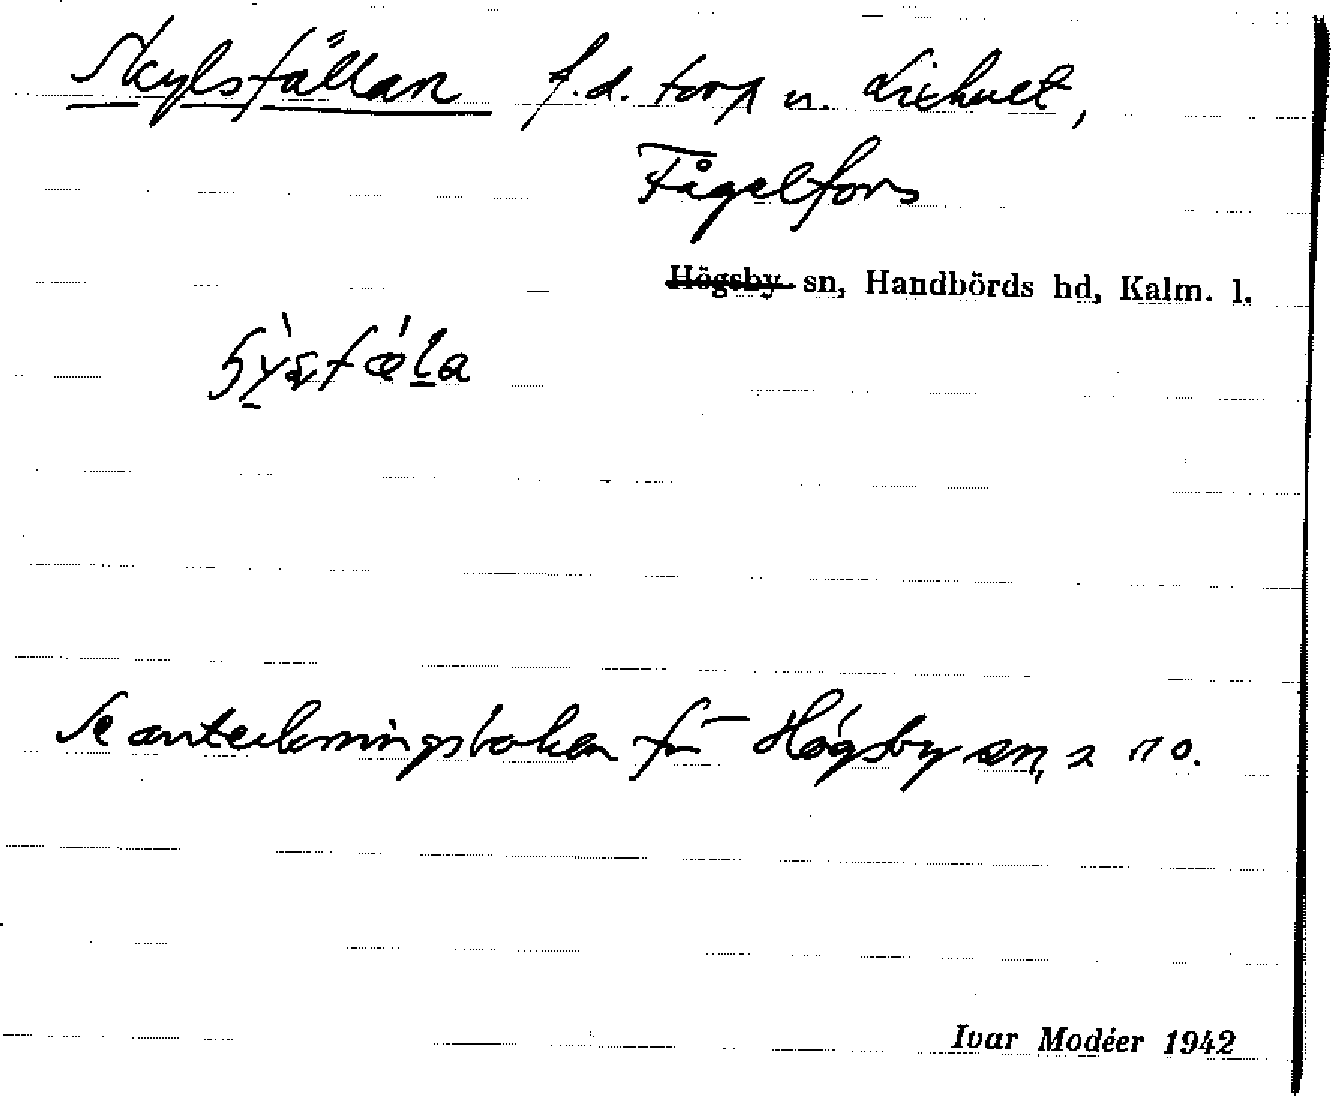 Skylsfällan f.d. torp u. Lixhult,
Fågelfors
Högsby sn, Handbörds hd, Kalm. l.
Se anteckningsboken för Högsby sn, s 170.
Ivar Modéer 1942